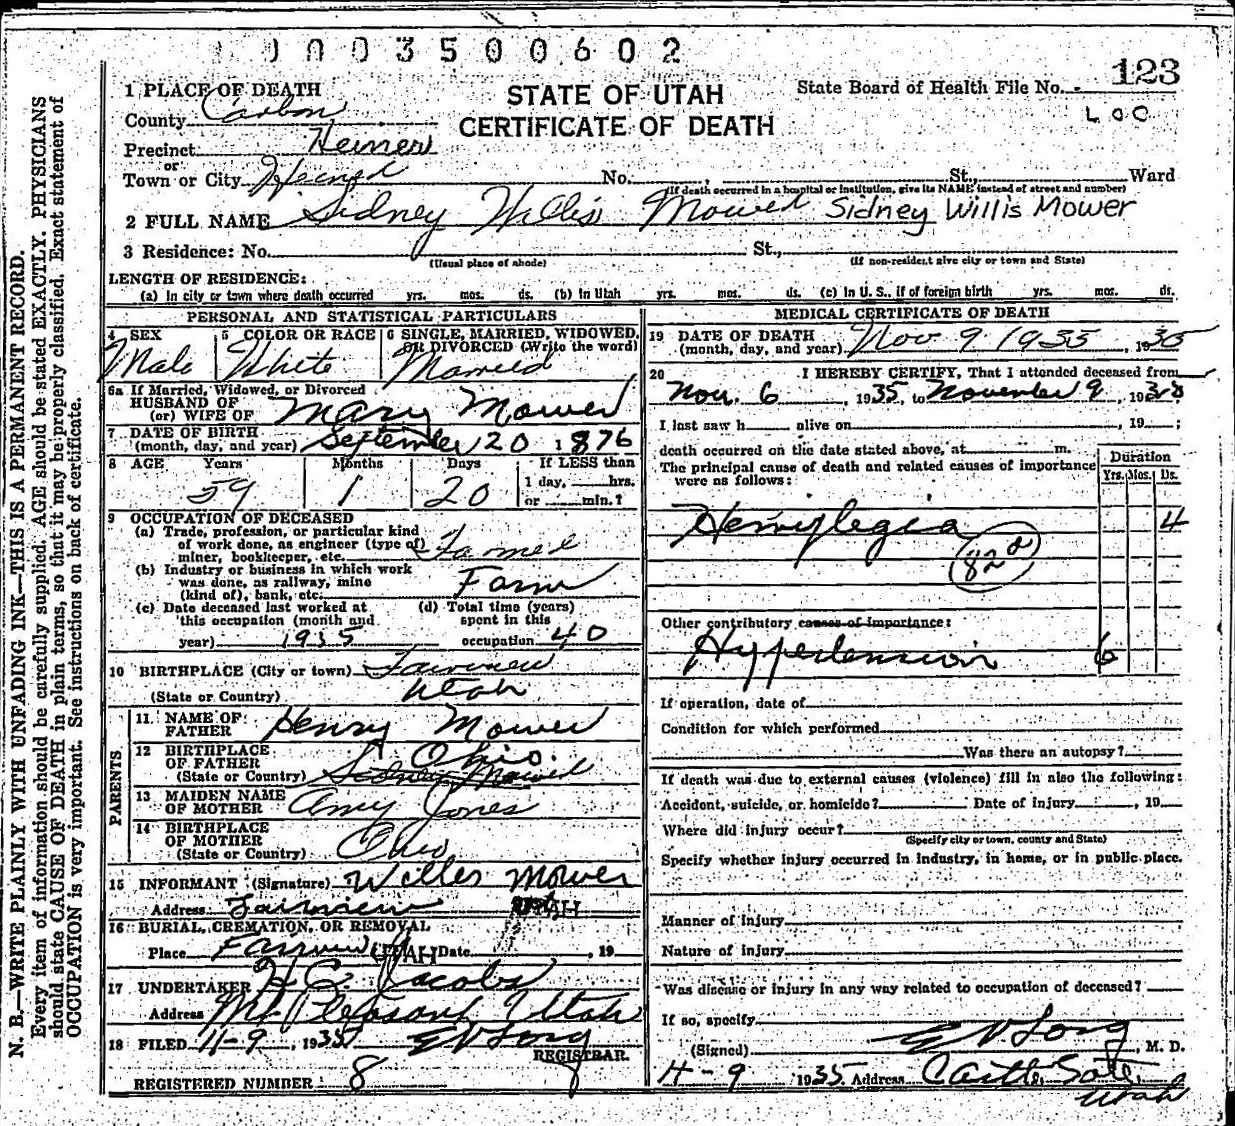 0003500602
123
State Board of Health File No.
L O C
STATE OF UTAH
CERTIFICATE OF DEATH
1 PLACE OF DEATH
County Carbon
Precinct Heiner
or
Town or City Heiner No. , St., Ward
(If death occurred in a hospital or institution, give its NAME instead of street and number)
2 FULL NAME Sidney Willis Mower Sidney Willis Mower
3 Residence: No. St.,
(Usual place of abode) (If non-resident give city or town and State)
LENGTH OF RESIDENCE:
(a) In city or town where death occurred yrs. mos. ds. (b) In Utah yrs. mos. ds. (c) In U. S., if of foreign birth yrs. mos. ds.
PERSONAL AND STATISTICAL PARTICULARS
4 SEX
Male
5 COLOR OR RACE
White
6 SINGLE, MARRIED, WIDOWED,
OR DIVORCED (Write the word)
Married
6a If Married, Widowed, or Divorced
HUSBAND OF
(or) WIFE OF Mary Mower
7 DATE OF BIRTH
(month, day, and year) September 20 1876
8 AGE Years Months Days If LESS than
59 1 20 1 day, hrs.
or min.?
9 OCCUPATION OF DECEASED
(a) Trade, profession, or particular kind
of work done, as engineer (type of)
miner, bookkeeper, etc. Farmer
(b) Industry or business in which work
was done, as railway, mine
(kind of), bank, etc. Farm
(c) Date deceased last worked at
this occupation (month and
year) 1935
(d) Total time (years)
spent in this
occupation 40
10 BIRTHPLACE (City or town) Fairview
(State or Country) Utah
PARENTS
11 NAME OF
FATHER Henry Mower
12 BIRTHPLACE
OF FATHER Ohio
(State or Country) Sidney Mower
13 MAIDEN NAME
OF MOTHER Amy Jones
14 BIRTHPLACE
OF MOTHER
(State or Country) Ohio
15 INFORMANT (Signature) Willes Mower
Address Fairview UTAH
16 BURIAL, CREMATION, OR REMOVAL
Place Fairview UTAH Date , 19
17 UNDERTAKER H C Jacobs
Address Mt Pleasant Utah
18 FILED 11-9, 1935 E V Long
REGISTRAR.
REGISTERED NUMBER 8
MEDICAL CERTIFICATE OF DEATH
19 DATE OF DEATH
(month, day, and year) Nov 9 1935, 1935
20 I HEREBY CERTIFY, That I attended deceased from
Nov. 6, 1935, to November 9, 1935
I last saw h alive on , 19 ;
death occurred on the date stated above, at m.
The principal cause of death and related causes of importance
were as follows:
Duration
Yrs. Mos. Ds.
Hemiplegia 4
Other contributory causes of importance:
Hypertension 6
If operation, date of
Condition for which performed
Was there an autopsy?
If death was due to external causes (violence) fill in also the following:
Accident, suicide, or homicide? Date of injury , 19
Where did injury occur?
(Specify city or town, county and State)
Specify whether injury occurred in industry, in home, or in public place.
Manner of injury
Nature of injury
Was disease or injury in any way related to occupation of deceased?
If so, specify
(Signed) E V Long, M. D.
11-9 1935 Address Castle Gate,
Utah
N. B.—WRITE PLAINLY WITH UNFADING INK—THIS IS A PERMANENT RECORD.
Every item of information should be carefully supplied. AGE should be stated EXACTLY. PHYSICIANS
should state CAUSE OF DEATH in plain terms, so that it may be properly classified. Exact statement of
OCCUPATION is very important. See instructions on back of certificate.